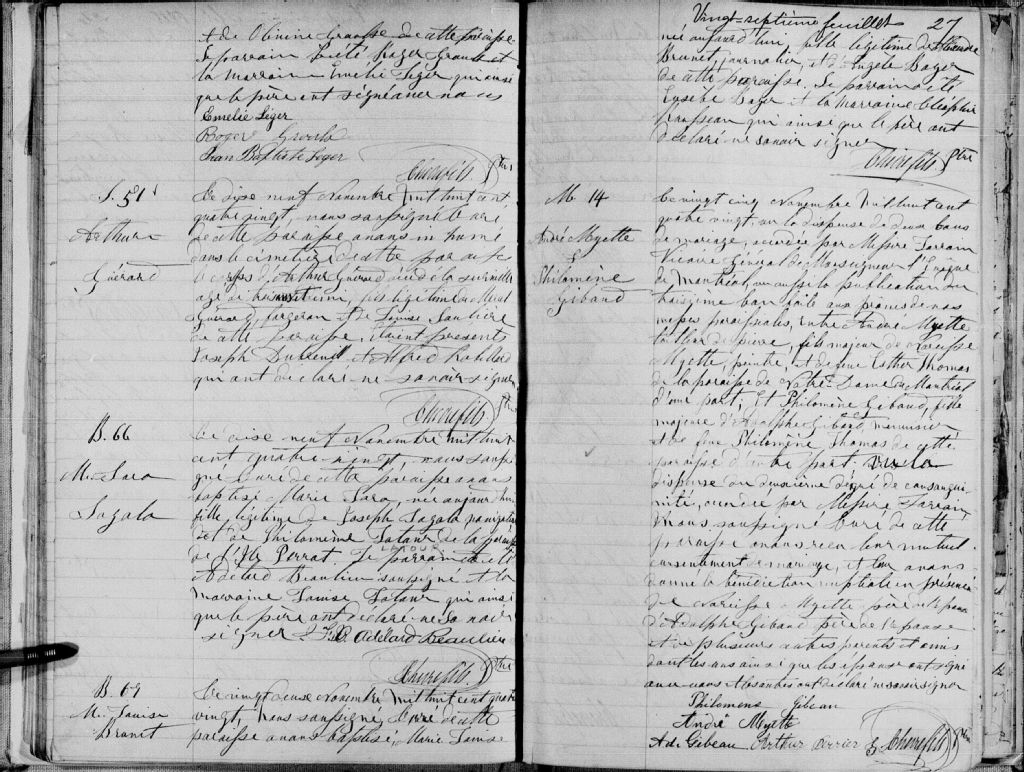 et de Olivine Gravosse de cette paroisse
Le parrain a été Roger Gravel et
la Marraine Emelie Leger qui ainsi
que le père ont signé avec nous
Emelie Léger
Roger
Jean Baptiste Leger
Chèvrefils Ptre
S. 51
Arthur
Guérard
Le dise neuf Novembre mil huit cent
quatre vingt, nous soussigné Curé
de cette paroisse avons inhumé
dans le cimetière de cette paroisse
le corps d'Arthur Guérard décédé la surveille
age de fils légitime de
Guérard, forgeron et de Louise
de cette paroisse, étaient présents
Joseph et Alfred Robillard
qui ont déclaré ne savoir signer
Chèvrefils Ptre
B. 66
M. Sara
Lazala
Le dise neuf Novembre mil huit
cent quatre vingt, nous soussi
gné Curé de cette paroisse avons
baptisé Marie Sara, née aujourd'hui
fille légitime de Joseph Lazala navigateur
et de Philomène Latour de la paroisse
LATOUR
de l'Ile Perrot. Le parrain a été
Adelard Beaulieu soussigné et la
Marraine Louise Latour qui ainsi
que le père ont déclaré ne savoir
signer Adelard Beaulieu
Chèvrefils Ptre
B. 67
M. Louise
Brunet
Le vingt deux Novembre mil huit cent quatre
vingt, Nous soussigné, Curé de cette
paroisse avons baptisé, Marie Louise
Vingt-septième feuillet 27
née aujourd'hui, fille légitime de
Brunet, journalier, et d'Angèle Boyer
de cette paroisse. Le parrain a été
Eusèbe Boyer et la Marraine Cléophie
qui ainsi que le père ont
déclaré ne savoir signer
Chèvrefils Ptre
M. 14
André Myette
&
Philomène
Gibaud
Le vingt cinq Novembre mil huit cent
quatre vingt, vu la dispense de deux bans
de mariage, accordée par Messire Lorrain
Vicaire Général de Monseigneur l'Evêque
de Montréal, vu aussi la publication du
troisième ban faite aux prônes de nos
messes paroissiales, entre André Myette
tailleur de pierre, fils majeur de Narcisse
Myette, peintre, et de feue Esther Thomas
de la paroisse de Notre-Dame de Montréal
d'une part; Et Philomène Gibaud, fille
majeure d'Adolphe Gibaud, menuisier
et de feue Philomène Thomas de cette
paroisse d'autre part. Vu la
dispense du deuxième degré de consangui-
nité, accordée par Messire Lorrain
Nous soussigné Curé de cette
paroisse avons reçu leur mutuel
consentement de mariage, et leur avons
donné la bénédiction nuptiale en présence
de Narcisse Myette père de l'époux
d'Adolphe Gibaud père de l'épouse
et de plusieurs autres parents et amis
dont les uns ainsi que les époux ont signé
avec nous et les autres ont déclaré ne savoir signer
Philomene Gibeau
André Myette
A de Gibeau Arthur Perrier Chèvrefils Ptre